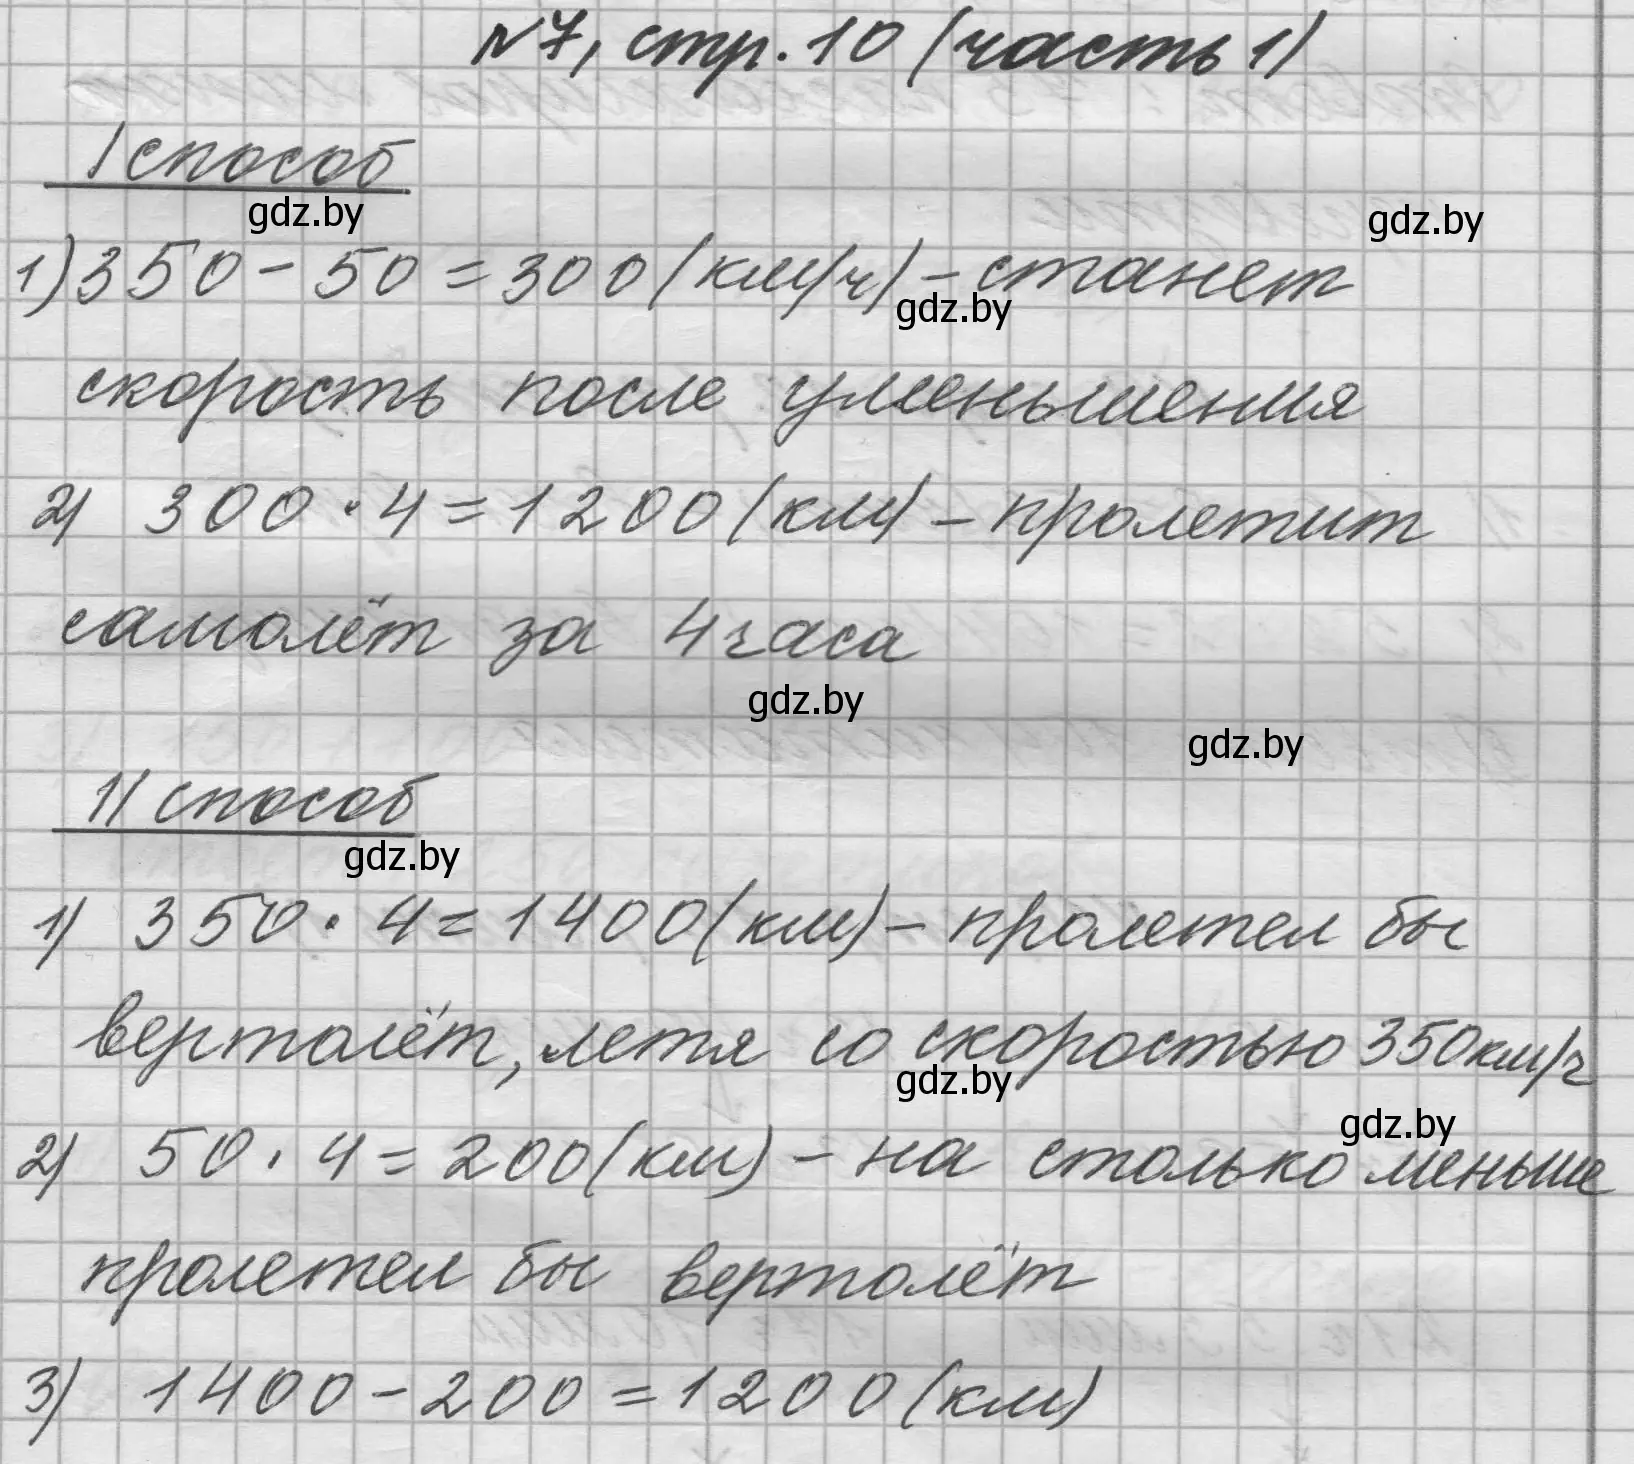 №7, стр. 10 (часть 1)
I способ
gdz.by
gdz.by
1) 350 - 50 = 300 (км/ч) - станет
gdz.by
скорость после уменьшения
2) 300 · 4 = 1200 (км) - пролетит
самолёт за 4 часа
gdz.by
gdz.by
II способ
gdz.by
1) 350 · 4 = 1400 (км) - пролетел бы
вертолёт, летя со скоростью 350 км/ч
gdz.by
gdz.by
2) 50 · 4 = 200 (км) - на столько меньше
пролетел бы вертолёт
3) 1400 - 200 = 1200 (км)